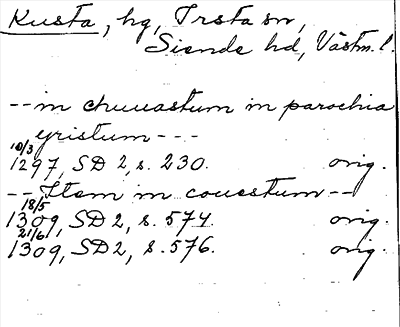 Kusta, hg, Irsta sn,
Siende hd, Västm. l.
-- in chuuastum in parochia
yristum ---
10/3
1297, SD 2, s. 230. orig.
-- Item in couestum --
18/5
1309, SD 2, s. 574. orig.
21/6
1309, SD 2, s. 576. orig.